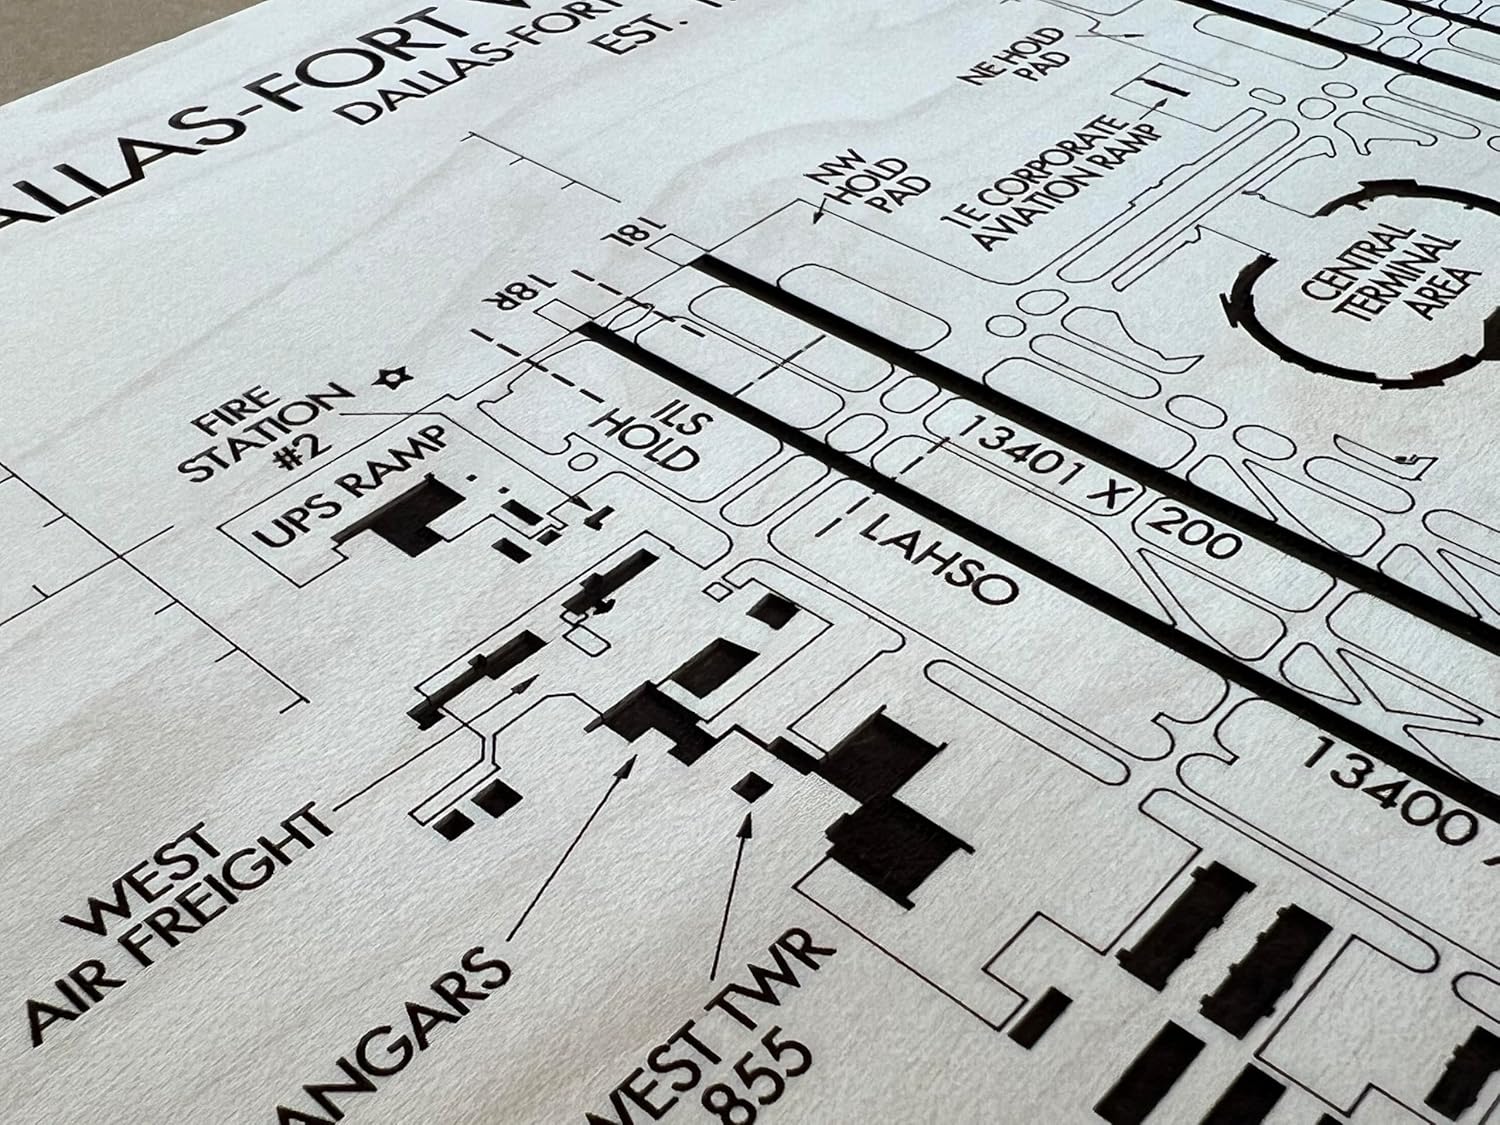 ALLAS-FORT
DALLAS-FORT
EST.
NE HOLD
PAD
1E CORPORATE
AVIATION RAMP
NW
HOLD
PAD
CENTRAL
TERMINAL
AREA
18L
18R
FIRE
STATION
#2
UPS RAMP
ILS
HOLD
13401 X 200
LAHSO
13400
WEST
AIR FREIGHT
ANGARS
WEST TWR
855